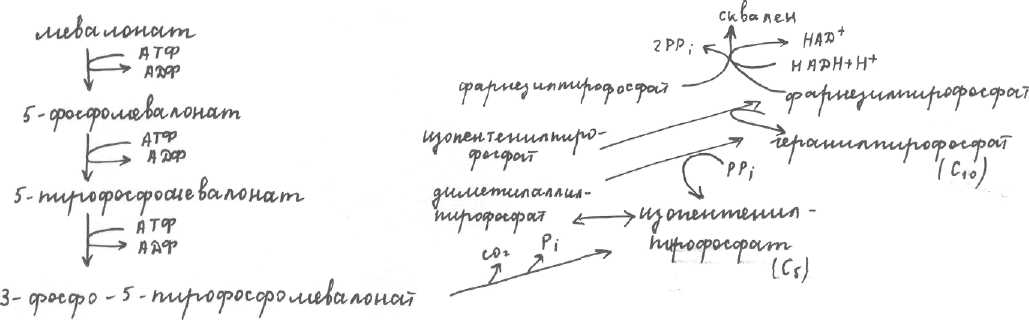 мевалонат
АТФ
АДФ
5-фосфомевалонат
АТФ
АДФ
5-пирофосфомевалонат
АТФ
АДФ
3-фосфо-5-пирофосфомевалонат
CO₂
Pi
сквален
2PPi
НАД⁺
НАДН+Н⁺
фарнезилпирофосфат
фарнезилпирофосфат
изопентенилпиро-
фосфат
геранилпирофосфат
(C₁₀)
PPi
диметилаллил-
пирофосфат
изопентенил-
пирофосфат
(C₅)